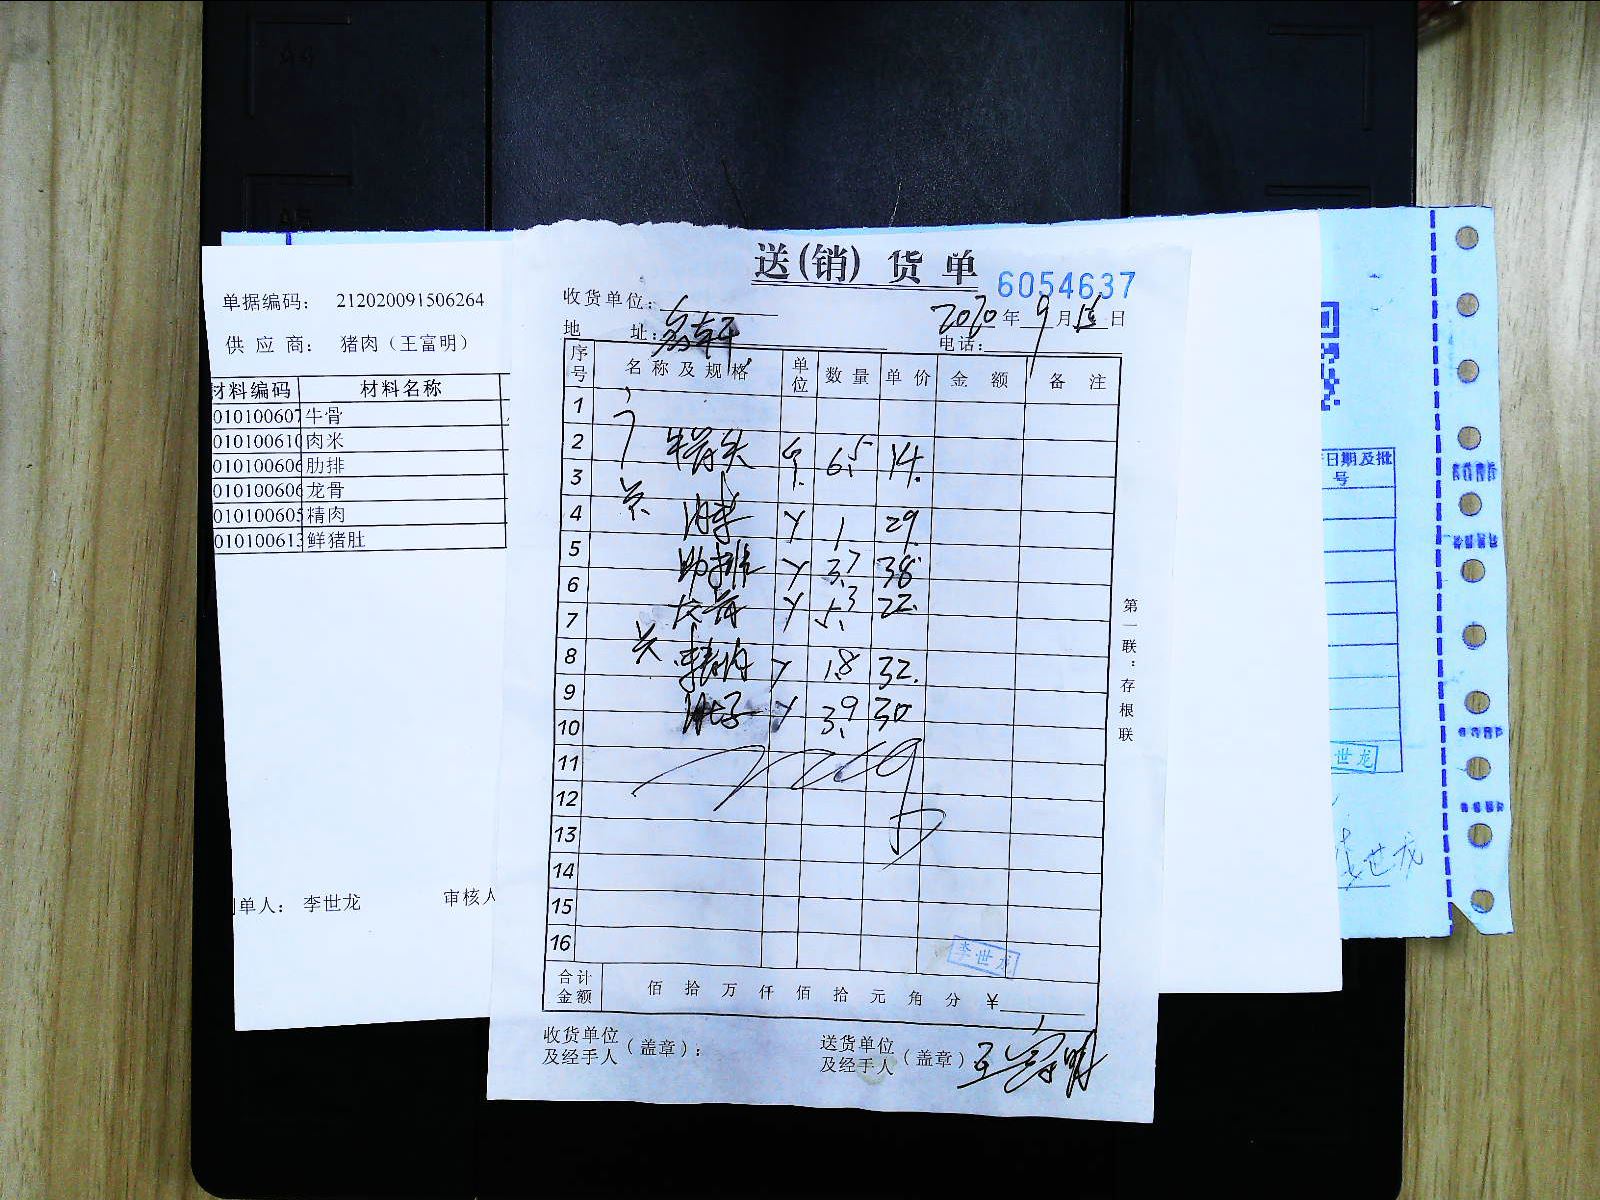 送(销)货单
6054637
收货单位:
2020年9月15日
地 址:
电话:
序号 名称及规格 单位 数量 单价 金额 备注
1
2 牛骨头 个 6.5 14.
3
4 肉末 1 29
5 肋排 3.7 38
6
7 龙骨 5.3 22.
8 精肉 1.8 32.
9 肚子 3.9 30
10
11
12
13
14
15
16
合计金额 佰拾万仟佰拾元角分 ¥
收货单位及经手人(盖章):
送货单位及经手人(盖章) 王富明
第一联:存根联
李世龙
单据编码: 212020091506264
供应商: 猪肉(王富明)
材料编码 材料名称
010100607 牛骨
01010061 肉米
010100606 肋排
010100606 龙骨
010100605 精肉
010100613 鲜猪肚
单人: 李世龙
审核人
日期及批号
世龙
李世龙